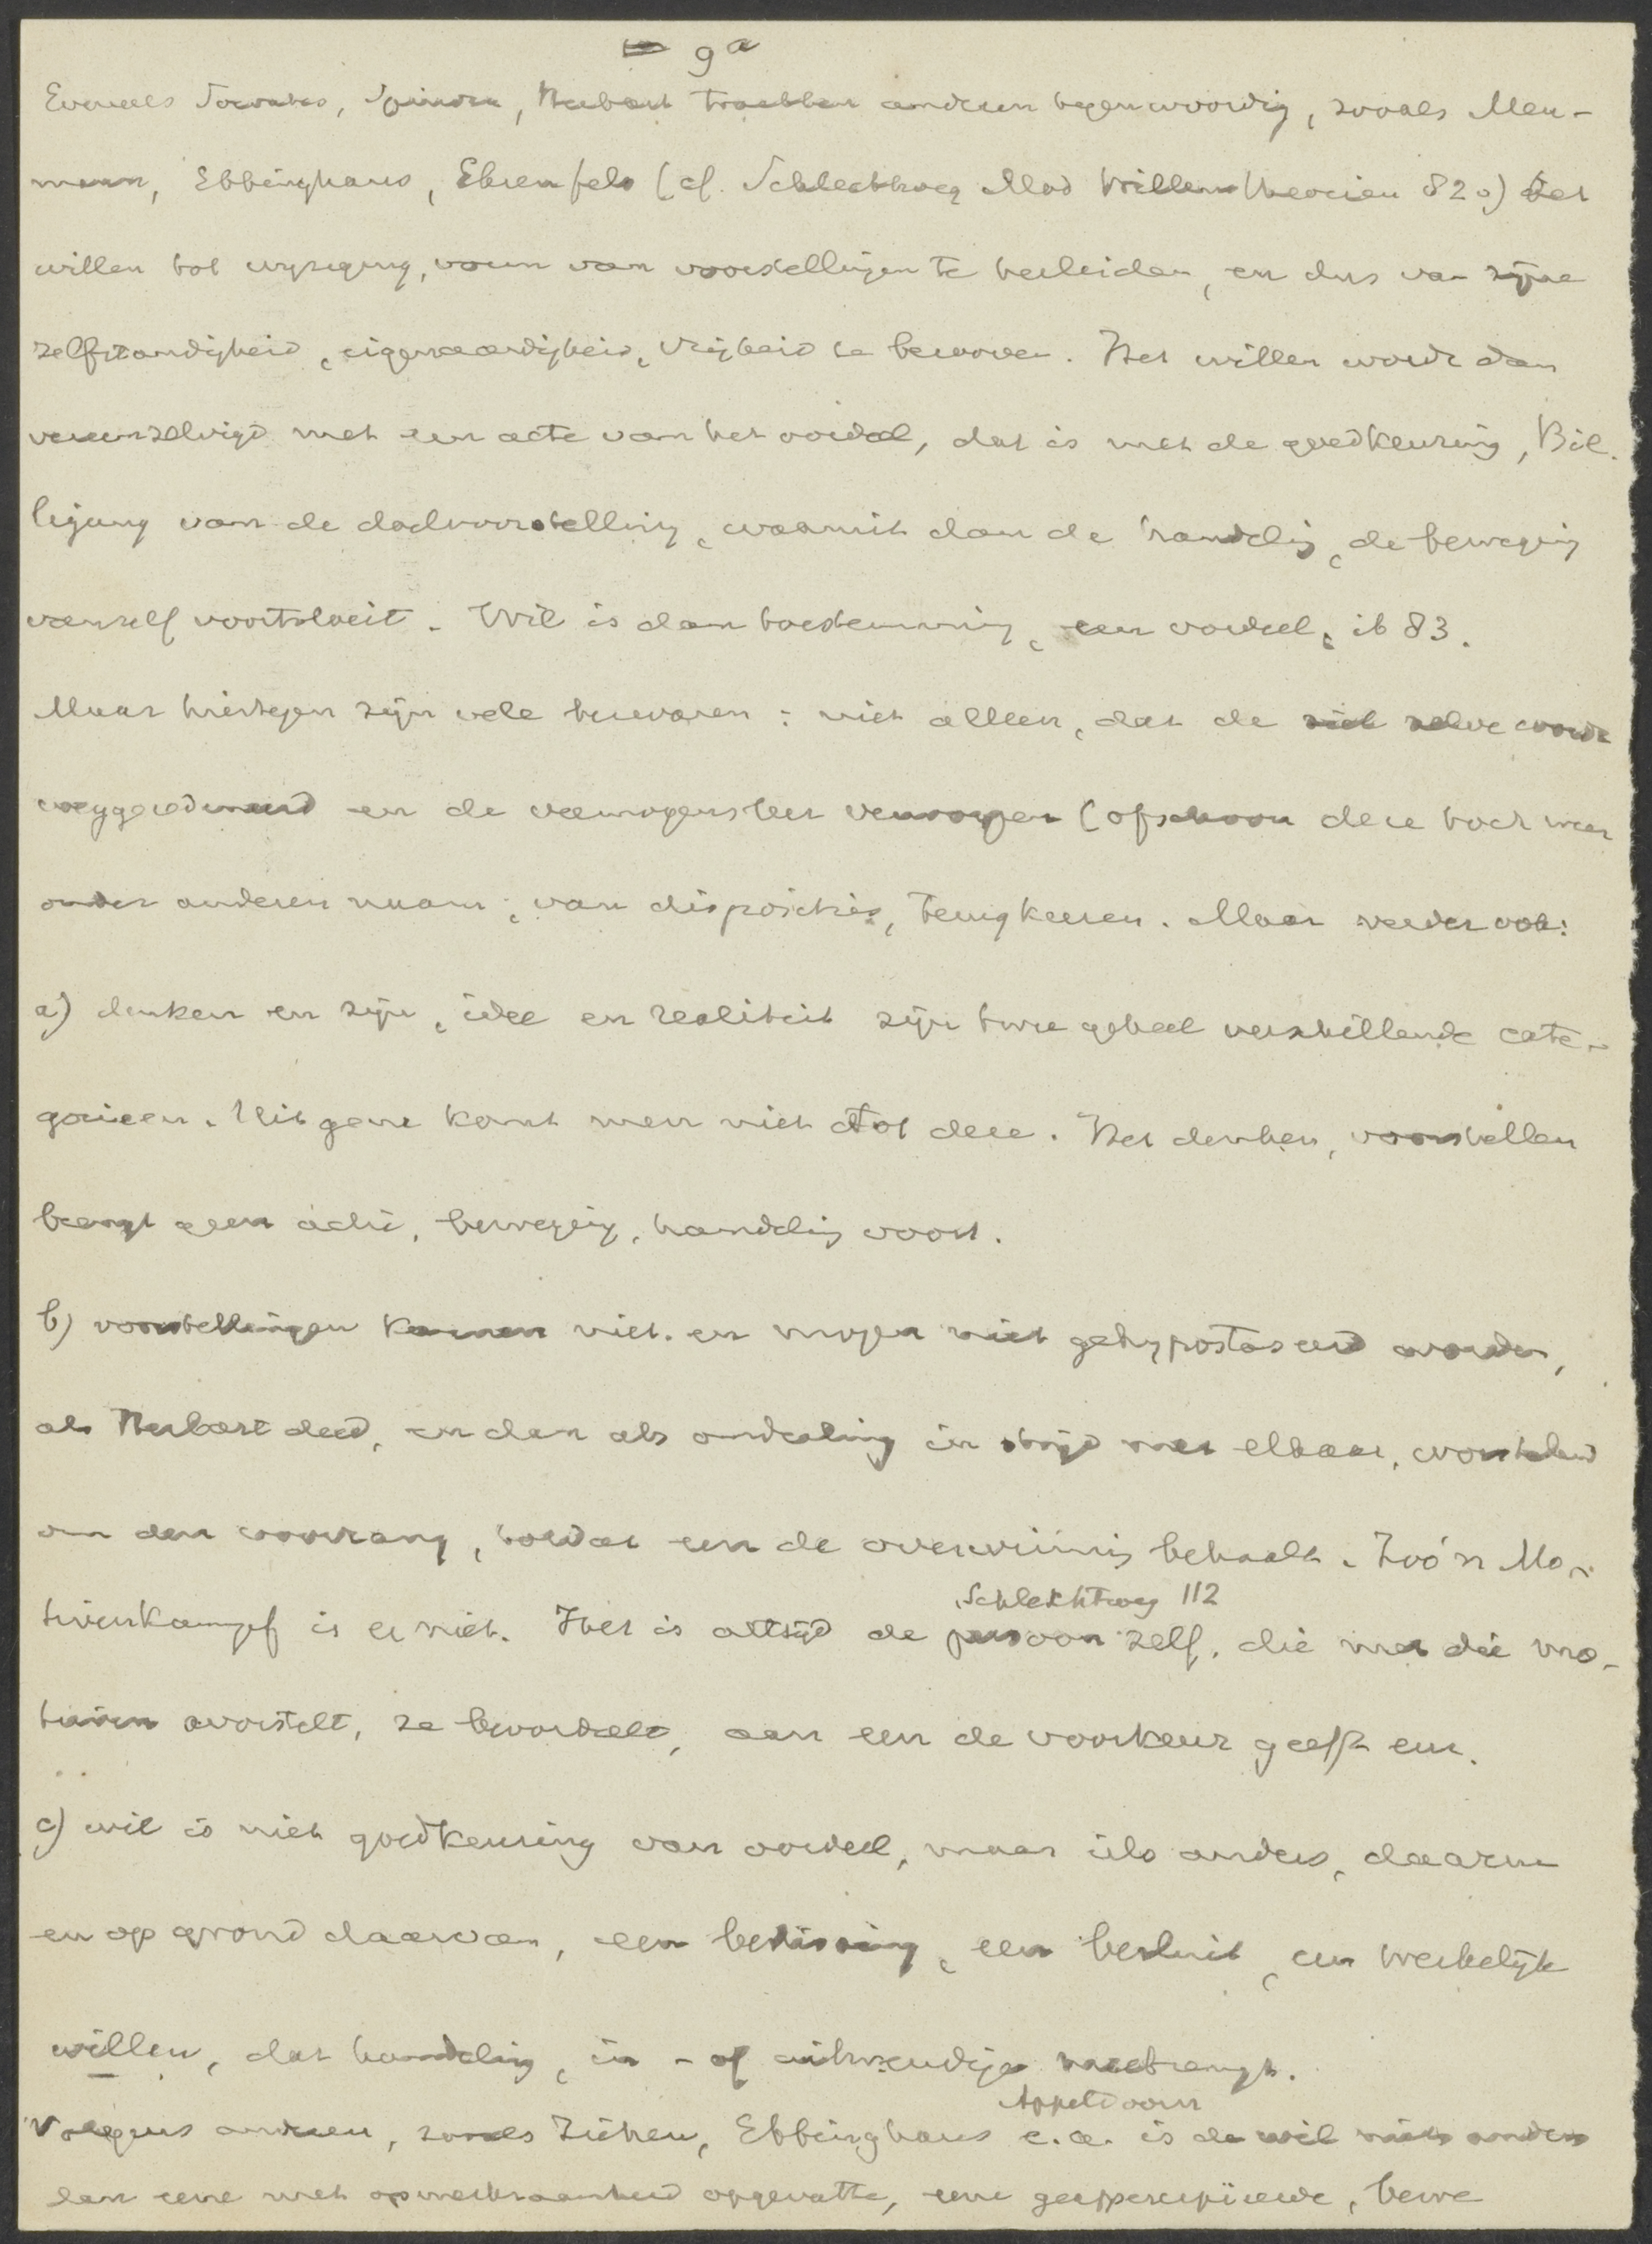 9a
Evenals Socrates, Spinoza, Herbart trachten anderen tegenwoordig, zooals Meu-
mann, Ebbinghaus, Ehrenfels (cf. Schlechtweg Mod Willenstheorien 82v) het
willen tot wijziging, vorm van voorstellingen te herleiden, en dus van zijne
zelfstandigheid, eigenaardigheid, vrijheid te berooven. Het willen wordt dan
vereenzelvigd met een acte van het oordeel, dat is met de goedkeuring, Bil.
ligung van de doelvoorstelling, waaruit dan de handeling, de beweging
vanzelf voortvloeit. Wil is dan toestemming, een oordeel, ib 83.
Maar hiertegen zijn vele bezwaren: niet alleen, dat de ziel zelve wordt
weggeredeneerd en de vermogensleer verworpen (ofschoon deze toch weer
onder anderen naam, van disposities, terugkeeren. Maar verder ook:
a) denken en zijn, idee en realiteit zijn twee geheel verschillende cate-
gorieen. Uit gene komt men niet tot deze. Het denken, voorstellen
brengt geen actie, beweging, handeling voort.
b) voorstellingen kunnen niet en mogen niet gehypostaseerd worden,
als Herbart deed, en dan als onderling in strijd met elkaar, worstelend
om den voorrang, totdat een de overwinning behaalt. Zoo'n Mo-
tivenkampf is er niet. Het is altijd de persoon zelf, die met die mo-
Schlechtweg 112
tieven worstelt, ze beoordeelt, aan een de voorkeur geeft enz.
c) wil is niet goedkeuring van oordeel, maar iets anders, daarna
en op grond daarvan, een beslissing, een besluit, een werkelijk
willen, dat handeling, in- of uitwendige meebrengt.
Volgens anderen, zooals Ziehen, Ebbinghaus e.a. is de wil niets anders
Appeldoorn
dan eene met opmerkzaamheid opgevatte, eene geappercipieerde, bewe